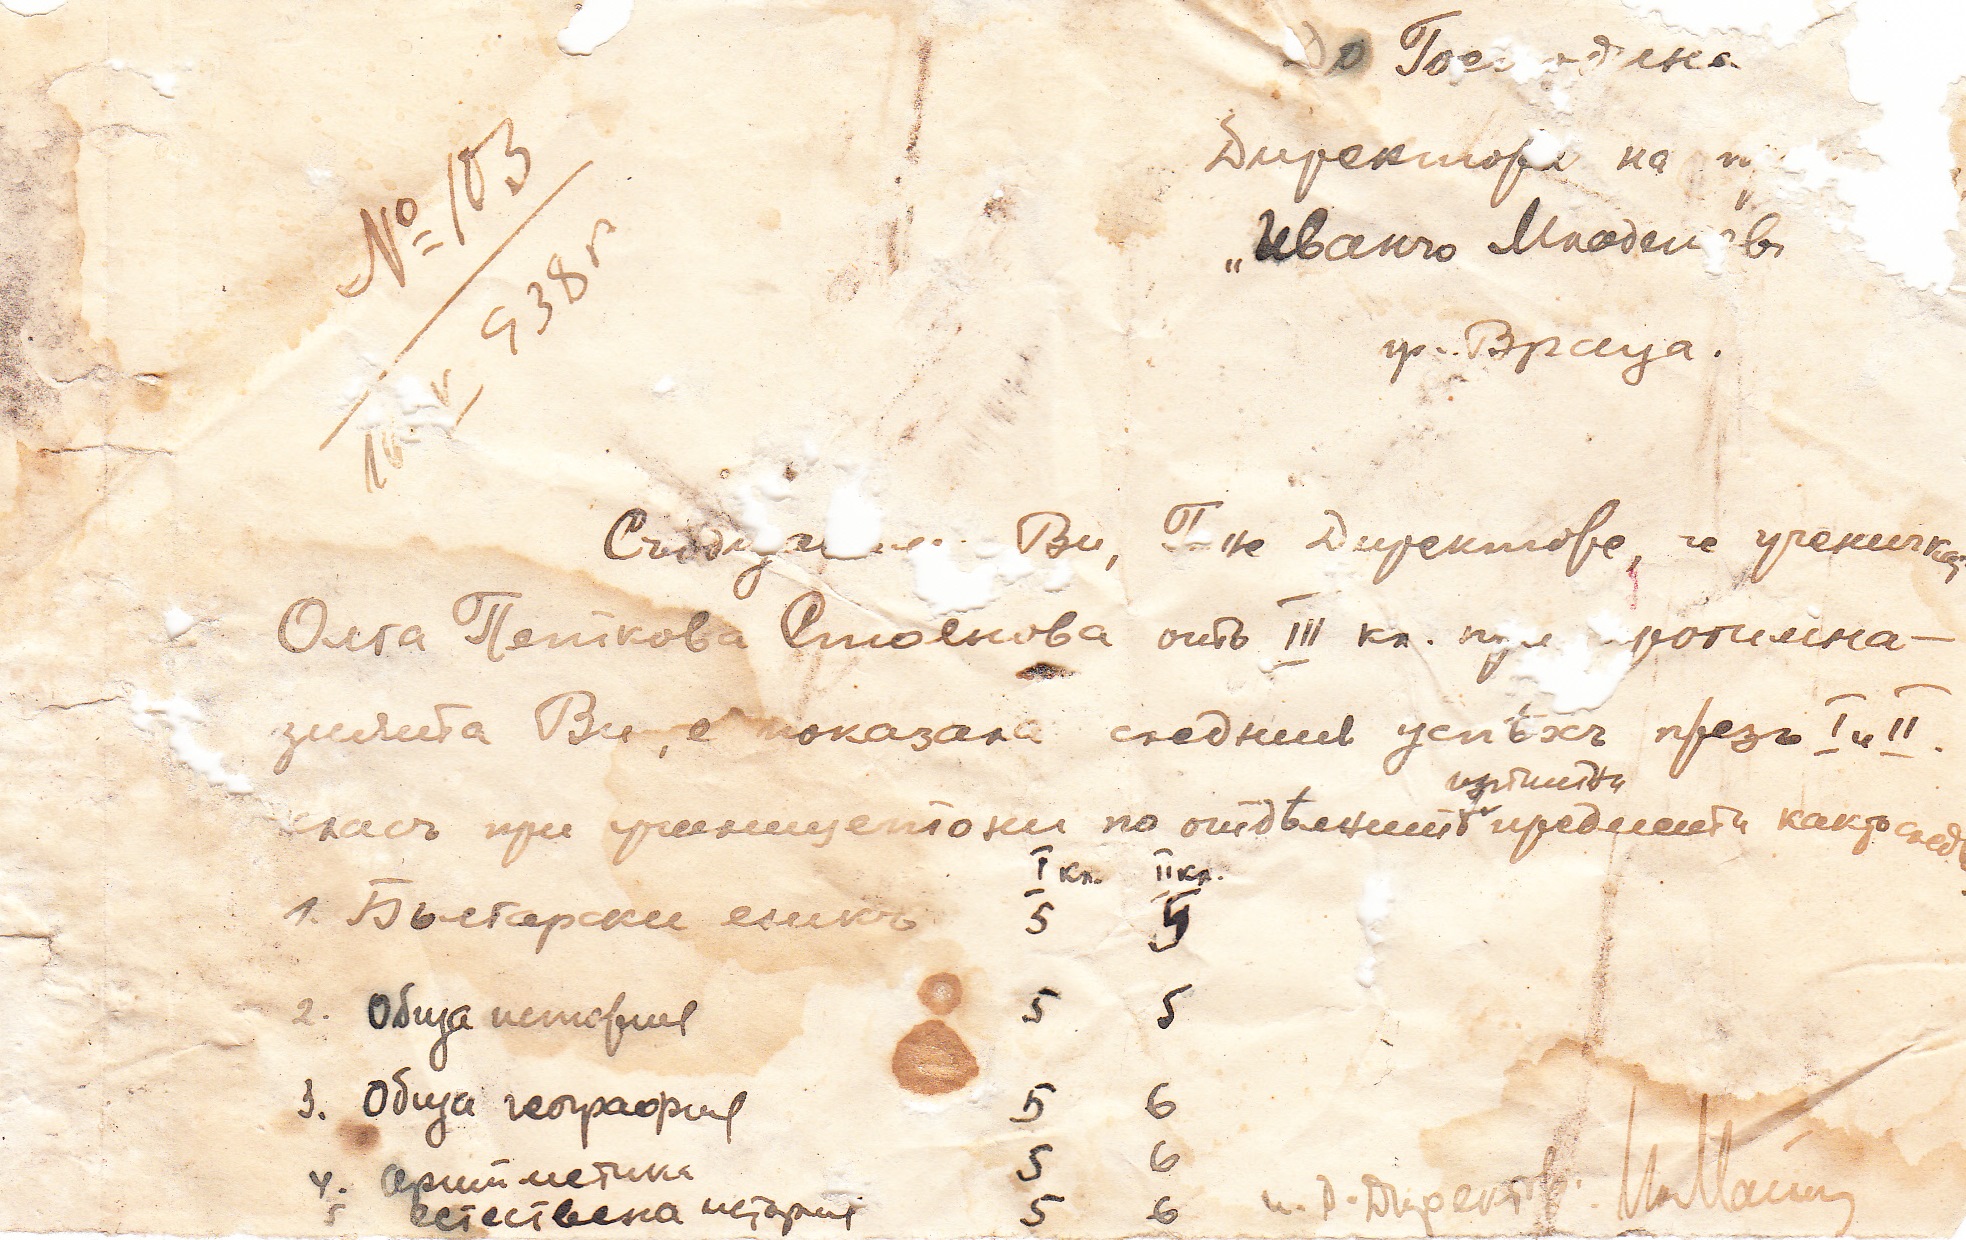 До Господина
Директора на
„Иванчо Младенов
гр. Враца.
№ 103
938 г
Ви, Г-не Директоре, че ученичка
Олга Петкова Стоянова отъ III кл. при
зията Ви, е показала следния успѣхъ презъ I и II.
класъ при училището ни по отдѣлнитѣ предмети както след
I кл. II кл.
1. Български езикъ 5 5
2. Обща история 5 5
3. Обща география 5 6
4. Аритметика 5 6
5 естествена история 5 6
Директоръ: